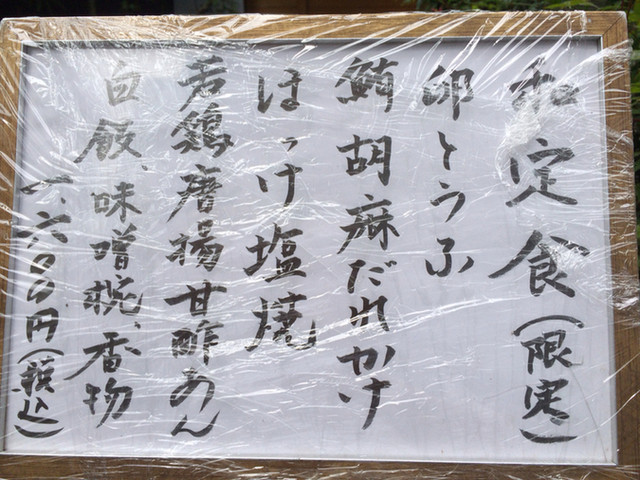 和定食(限定)
卵とうふ
鮪胡麻だれかけ
ほっけ塩焼
若鶏唐揚甘酢あん
白飯、味噌椀、香物
一、六〇〇円(税込)